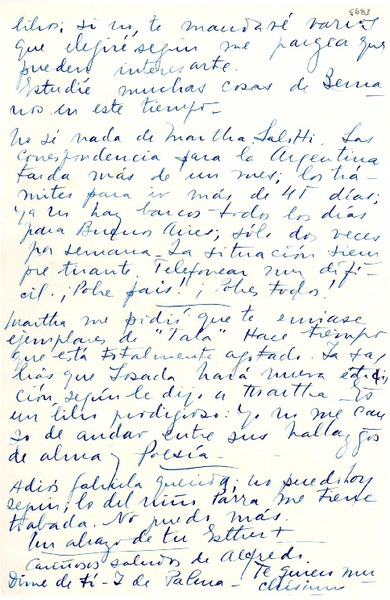 5683
libros; si no, te mandaré varios
que elegiré según me parezca que
pueden interesarte.
Estudié muchas cosas de Berna
nos en este tiempo—
No sé nada de Martha Salotti. Las
correspondencia para la Argentina
tarda más de un mes; los trá-
mites para ir más de 45 días;
ya no hay barcos todos los días
para Buenos Aires; sólo dos veces
por semana. La situación siem
pre tirante. Telefonear muy difí-
cil. ¡Pobre país! ¡Pobres todos!
Martha me pidió que te enviase
ejemplares de "Tala" Hace tiempo
que está totalmente agotado. Ya sa
brás que Losada hará nueva edi
ción, según le dijo a Martha— Es
un libro prodigioso: Yo no me can
so de andar entre sus hallazgos
de alma y poesía.—
Adiós Gabriela querida; no puedo hoy
seguir; lo del niño Parra me tiene
trabada. No puedo más.
Un abrazo de tu Esther—
Cariñosos saludos de Alfredo.
Dime de ti— I de Palma— Te quiero mu
chísimo